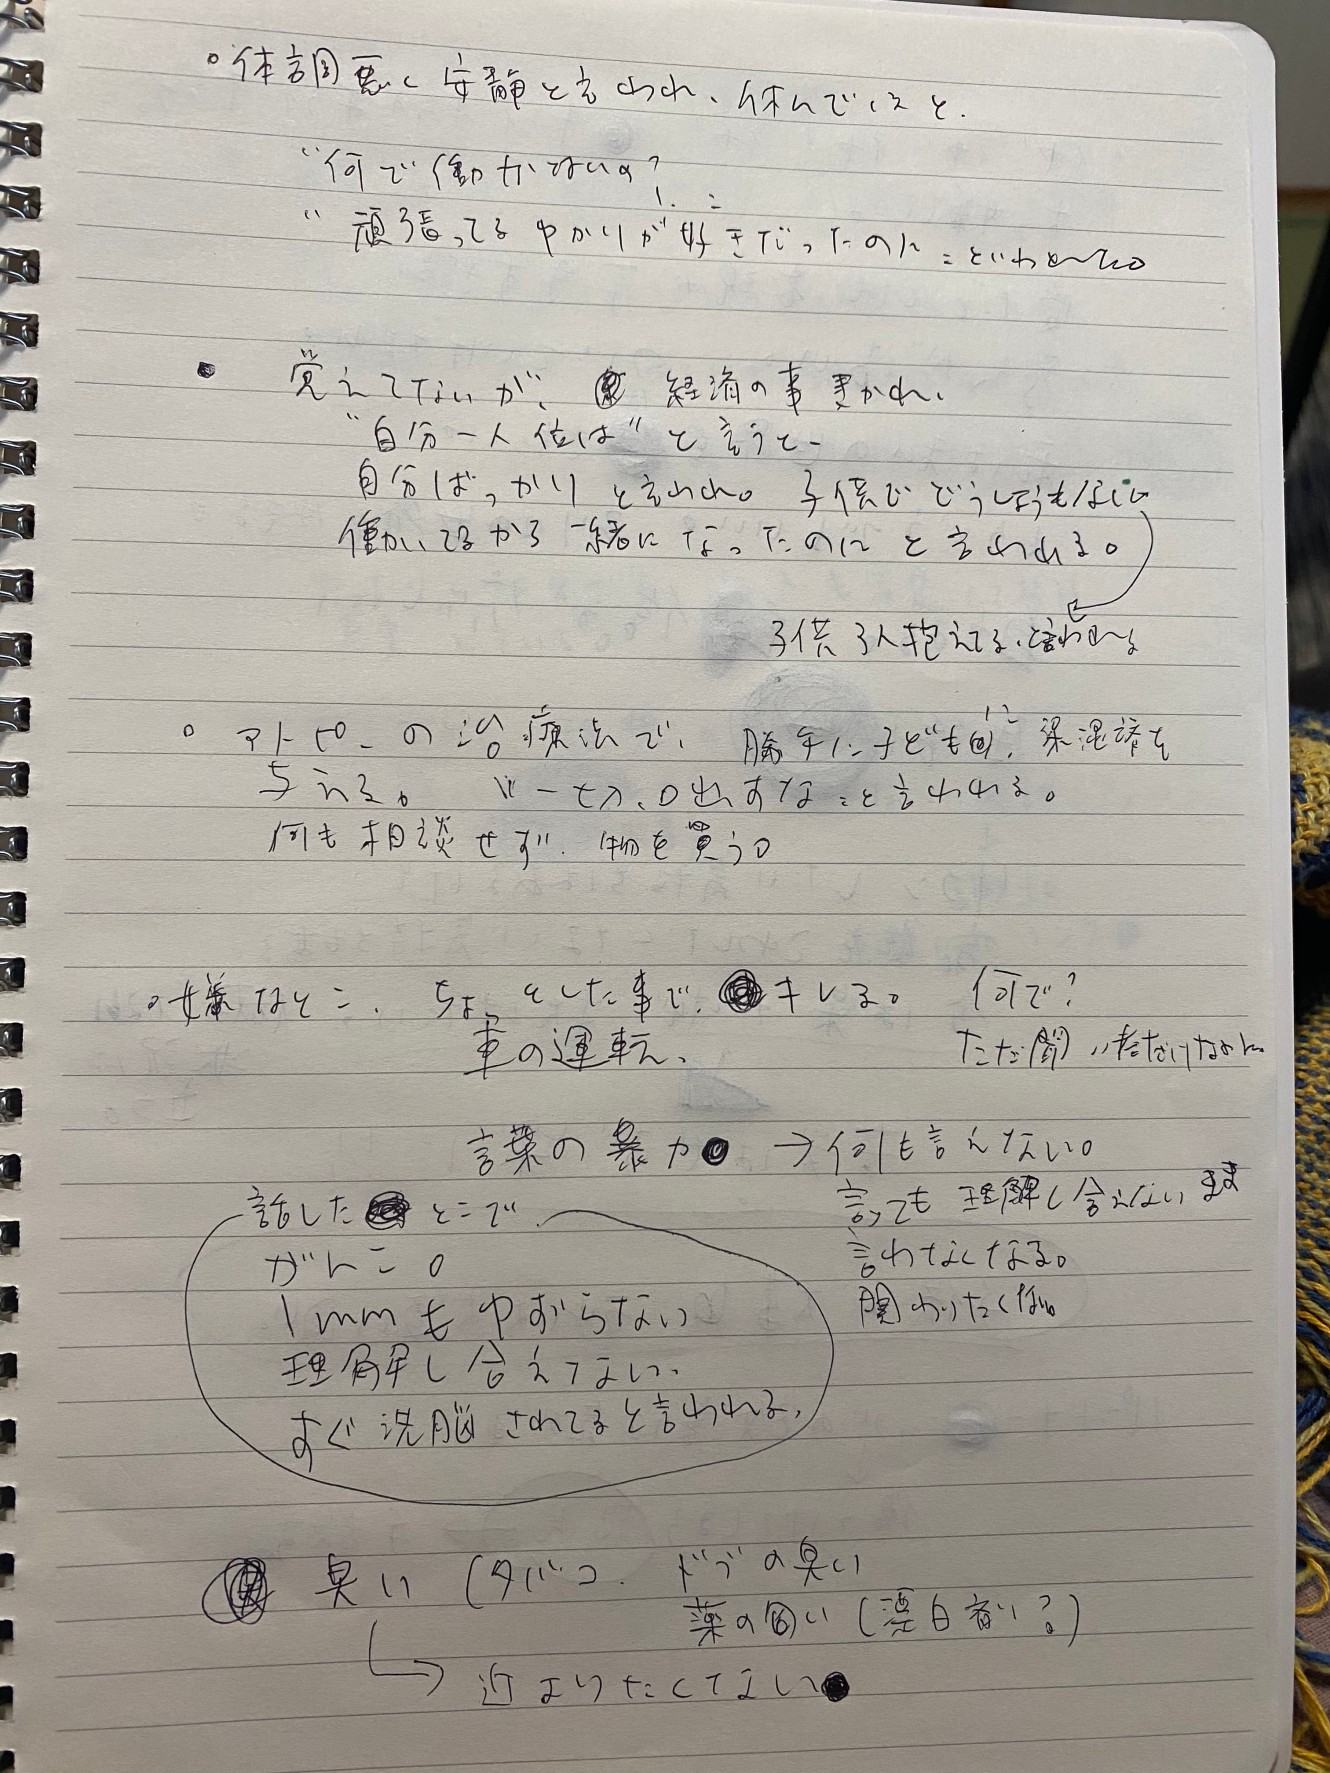 。体調悪く安静と言われ、休んでいると、
"何で働かないの?"
"頑張ってるゆかりが好きだったのに"といわれ
• 覚えてないが、経済の事聞かれ、
"自分一人位は"と言うと、
自分ばっかりと言われ。子供でどうしようもない
働いてるから一緒になったのにと言われる。
子供3人抱えてる、と言われる
。アトピーの治療法で、勝手に子ども用に、
与える。"一切、口出すな"と言われる。
何も相談せず、物を買う。
。嫌なとこ、ちょっとした事で、キレる。何で?
車の運転、 ただ聞いただけなのに
言葉の暴力 → 何も言えない。
話したとこで、 言っても理解し合えないまま
がんこ。 言わなくなる。
1mmもゆずらない 関わりたくない。
理解し合えてない、
すぐ洗脳されてると言われる、
臭い(タバコ、ドブの臭い
薬の匂い(漂白剤?)
近よりたくてない